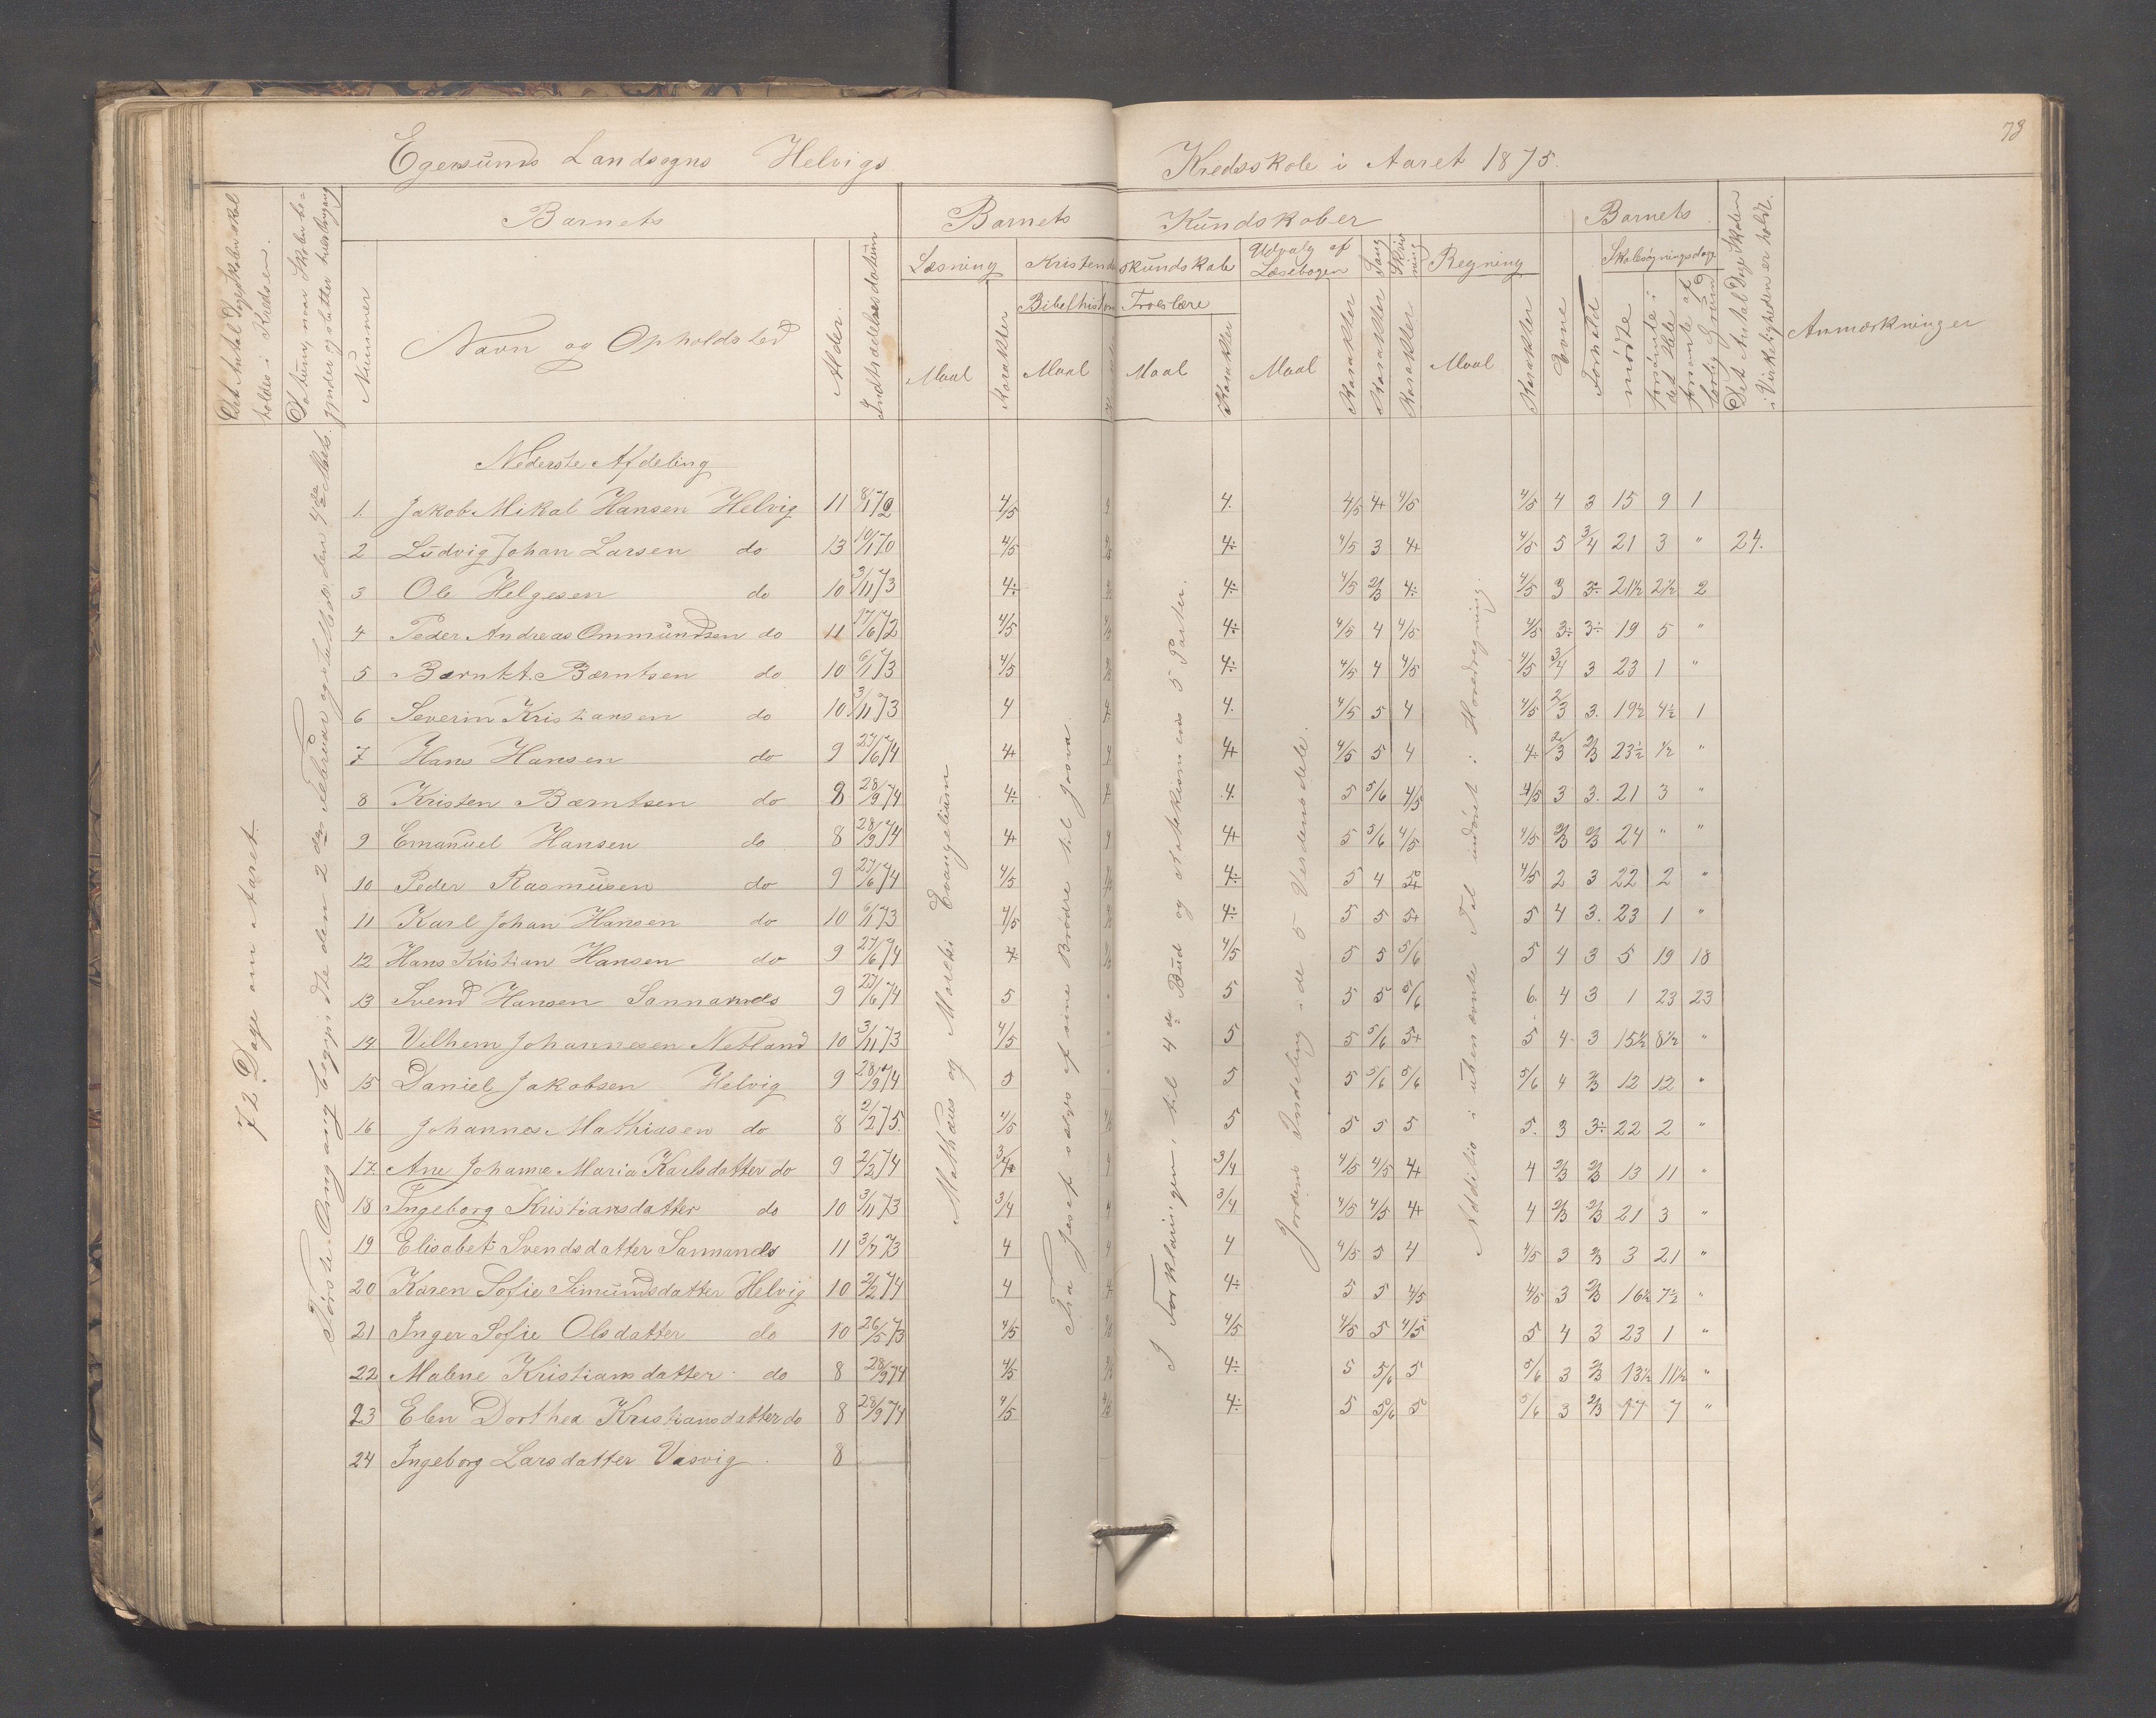 73
Egersunds Landsogns Helvigs Kredsskole i Aaret 1875.
Det Antal Dage Skolen skal holdes i Kredsen.
Datum, naar Skolen begynder og slutter hver Omgang
Barnets
Barnets Kundskaber
Barnets
Nummer
Navn og Opholdsted
Alder.
Indtrædelsesdatum
Læsning
Kristendomskundskab
Udvalg af Læsebogen
Sang
Skrivning
Regning
Evne
Forhold
Skolesøgningsdage
Det Antal Dage Skolen i Virkeligheden er holdt.
Anmærkninger
Bibelhistorie
Troeslære
Maal
Karakter
Maal
Maal
Karakter
Maal
Karakter
Karakter
Karakter
Maal
Karakter
mødte
forsømte i det Hele
forsømte af lovlig Grund
72 Dage om Aaret
Første Omgang begyndte den 2den Februar og sluttede den 4de Marts.
Mathæus og Marcus Evangelium
Fra Josef sælges af sine Brødre til Josva
I Forklaringen, til 4de Bud og Katekismens 5 Parter.
Jordens Inddeling i de 5 Verdensdele.
Additio i ubenævnte Tal indøvet i Hovedregning.
Nederste Afdeling
1. Jakob Mikal Hansen Helvig 11 8/1 72 4/5 4 4. 4/5 4+ 4/5 4/5 4 3 15 9 1
2 Ludvig Johan Larsen do 13 10/1 70 4/5 4/5 4÷ 4/5 3 4+ 4/5 5 3/4 21 3 " 24.
3 Ole Helgesen do 10 3/11 73 4÷ 4÷ 4/5 2/3 4÷ 4/5 3 3÷ 21½ 2½ 2
4 Peder Andreas Ommundsen do 11 17/6 72 4/5 4/5 4÷ 4/5 4 4/5 4/5 3÷ 3÷ 19 5 "
5 Bærnt A. Bærntsen do 10 6/1 73 4/5 4÷ 4/5 4 4/5 4/5 3/4 3 23 1 "
6 Severin Kristiansen do 10 3/11 73 4 4 4. 4/5 5 4 4/5 2/3 3. 19½ 4½ 1
7 Hans Hansen do 9 27/6 74 4+ 4 4+ 4/5 5 4 4÷ 2/3 2/3 23½ ½ "
8 Kristen Bærntsen do 8 28/9 74 4÷ 4 4. 5 5/6 4/5 4/5 3 3. 21 3 "
9 Emanuel Hansen do 8 28/9 74 4+ 4 4+ 5 5/6 4/5 4/5 2/3 2/3 24 " "
10 Peder Rasmusen do 9 27/6 74 4/5 4÷ 5 4 5+ 4/5 2 3 22 2 "
11 Karl Johan Hansen do 10 6/1 73 4/5 4÷ 5 5 5+ 5 4 3. 23 1 "
12 Hans Kristian Hansen do 9 27/6 74 4/5 5 5 5/6 5 4 3 5 19 18
13 Svend Hansen Sannarnes 9 27/6 74 5 5 5 5 5/6 6. 4 3 1 23 23
14 Vilhem Johannesen Netland 10 3/11 73 4/5 5 5 5/6 5+ 5 4 3 15½ 8½ "
15 Daniel Jakobsen Helvig 9 28/9 74 5 5 5 5/6 5/6 5/6 4 2/3 12 12 "
16 Johannes Mathiasen do 8 2/2 75. 4/5 4/5 5 5 5 5 5. 3 3÷ 22 2 "
17. Ane Johanne Maria Karlsdatter do 9 2/2 74 3/4 4 3/4 4/5 4/5 4+ 4 2/3 2/3 13 11 "
18 Ingeborg Kristiansdatter do 10 3/11 73 3/4 4 3/4 4/5 4/5 4+ 4 2/3 2/3 21 3 "
19 Elisabet Svendsdatter Sannands 11 3/7 73 4 4 4 4/5 5 4 4/5 3 2/3 3 21 "
20 Karen Sofie Simundsdatter Helvig 10 2/2 74 4 4 4÷ 5 5 4/5 4/5 3 2/3 16½ 7½ "
21 Inger Sofie Olsdatter do 10 26/5 73 4/5 4/5 4/5 5 4/5 5 4 3 23 1 "
22 Malene Kristiansdatter do 8 28/9 74 4/5 4÷ 5 5/6 5 5/6 3 2/3 13½ 11½ "
23 Elen Dorthea Kristiansdatter do 8 28/9 74 4/5 4/5 4÷ 5 5/6 5 5/6 3 2/3 17 7 "
24 Ingeborg Larsdatter Vasvig 8